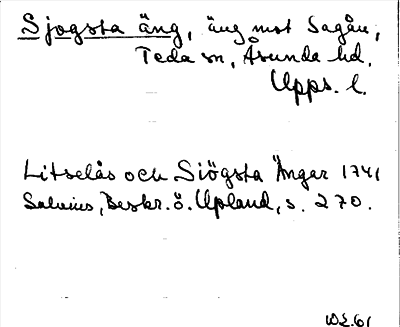 Sjögsta äng, äng mot Sagån,
Teda sn, Åsunda hd,
Upps. l.
Litselås och Siögsta Ängar 1741
Salvius, Beskr. ö. Upland, s. 270.